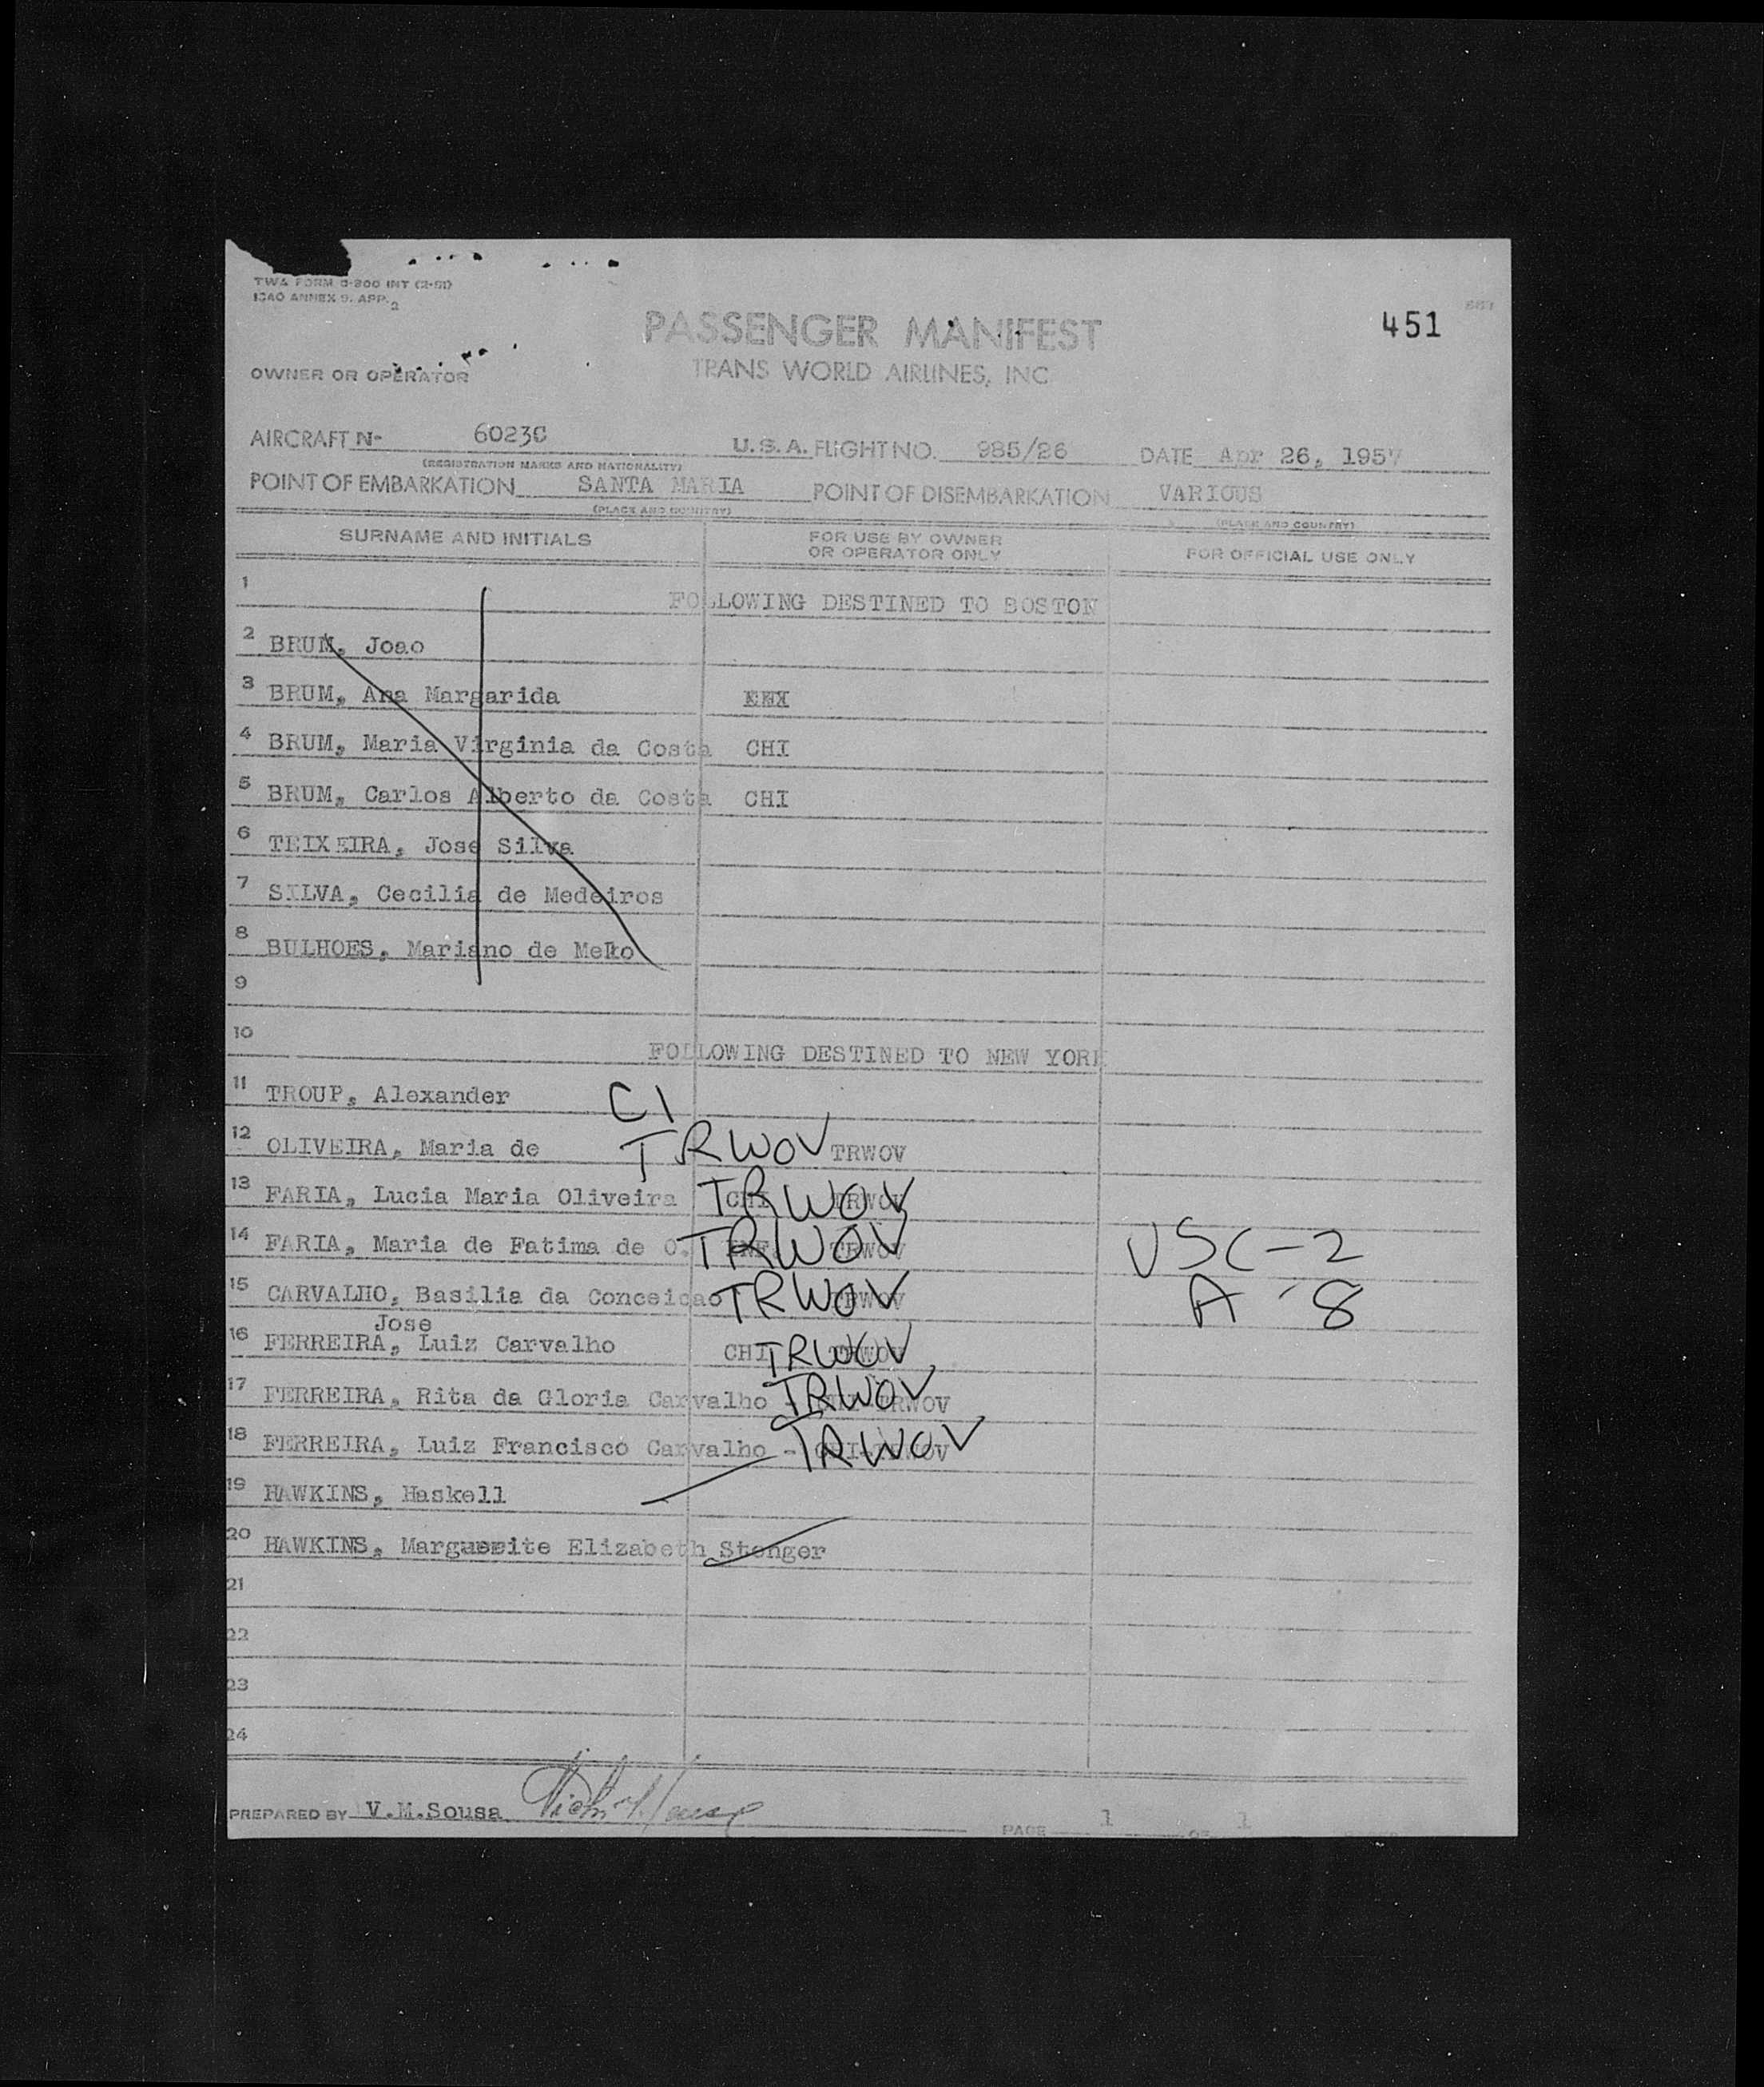 TWA FORM O-800 INT (2-51)
ICAO ANNEX 9. APP. 2
PASSENGER MANIFEST
451
TRANS WORLD AIRLINES, INC
OWNER OR OPERATOR
AIRCRAFT No 6023C U.S.A. FLIGHT NO. 985/26 DATE Apr 26, 1957
(REGISTRATION MARKS AND NATIONALITY)
POINT OF EMBARKATION SANTA MARIA POINT OF DISEMBARKATION VARIOUS
(PLACE AND COUNTRY) (PLACE AND COUNTRY)
SURNAME AND INITIALS FOR USE BY OWNER OR OPERATOR ONLY FOR OFFICIAL USE ONLY
1 FOLLOWING DESTINED TO BOSTON
2 BRUM, Joao
3 BRUM, Ana Margarida
4 BRUM, Maria Virginia da Costa CHI
5 BRUM, Carlos Alberto da Costa CHI
6 TEIXEIRA, Jose Silva
7 SILVA, Cecilia de Medeiros
8 BULHOES, Mariano de Melo
9
10 FOLLOWING DESTINED TO NEW YORK
11 TROUP, Alexander C1
12 OLIVEIRA, Maria de TRWOV TRWOV
13 FARIA, Lucia Maria Oliveira CHI TRWOV TRWOV
14 FARIA, Maria de Fatima de O. INF. TRWOV TRWOV USC-2
15 CARVALHO, Basilia da Conceicao TRWOV TRWOV A-8
Jose
16 FERREIRA, Luiz Carvalho CHI TRWOV TRWOV
17 FERREIRA, Rita da Gloria Carvalho - TRWOV TRWOV
18 FERREIRA, Luiz Francisco Carvalho - CHI-TRWOV TRWOV
19 HAWKINS, Haskell
20 HAWKINS, Marguerite Elizabeth Stenger
21
22
23
24
PREPARED BY V.M.Sousa
PAGE 1 OF 1